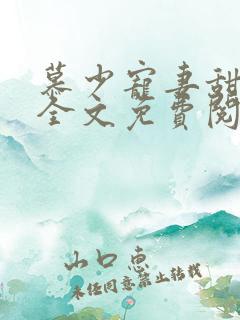 慕少寵妻甜
全文免費閱
山口惠
未经同意禁止转载